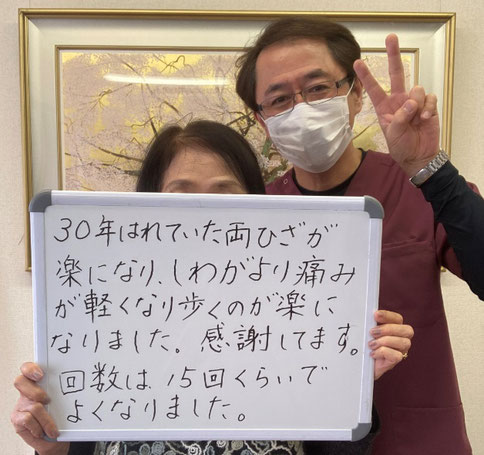 30年はれていた両ひざが
楽になり、しわがより痛み
が軽くなり歩くのが楽に
なりました。感謝してます。
回数は15回くらいで
よくなりました。